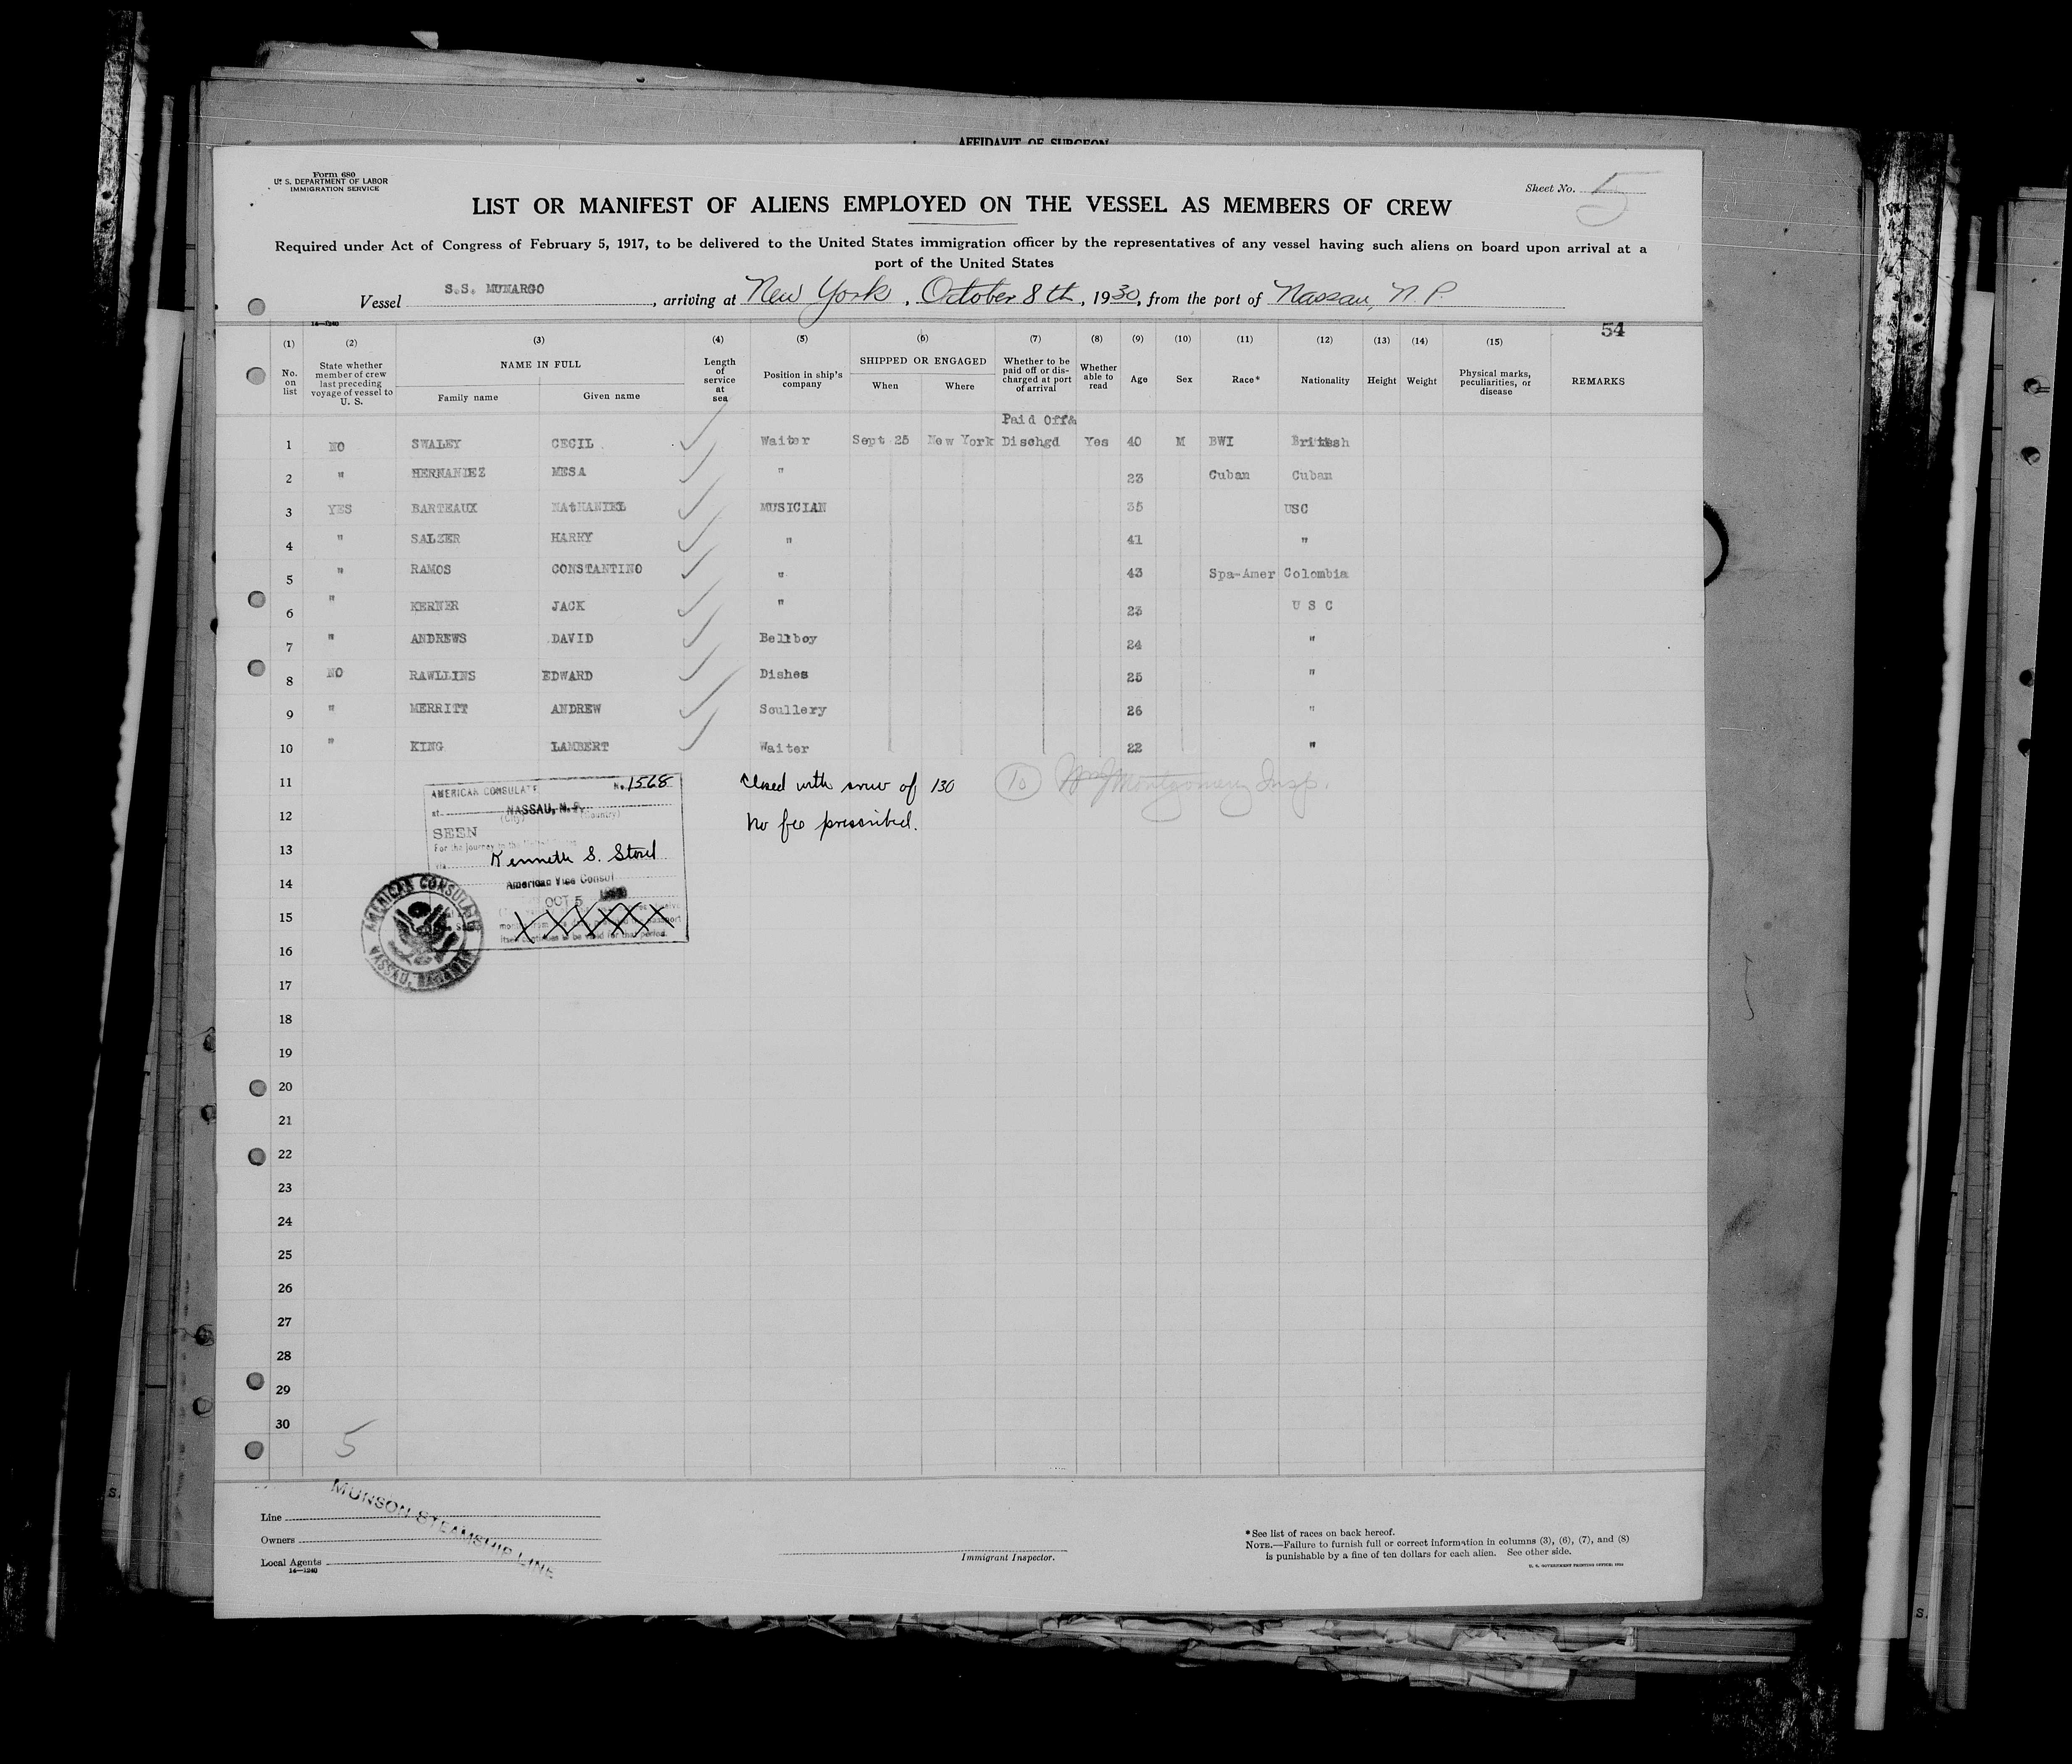 AFFIDAVIT OF SURGEON
Form 680
U. S. DEPARTMENT OF LABOR
IMMIGRATION SERVICE
Sheet No. 5
LIST OR MANIFEST OF ALIENS EMPLOYED ON THE VESSEL AS MEMBERS OF CREW
Required under Act of Congress of February 5, 1917, to be delivered to the United States immigration officer by the representatives of any vessel having such aliens on board upon arrival at a
port of the United States
Vessel S.S. MUNARGO, arriving at New York, October 8th, 1930, from the port of Nassau, N.P.
14—1240
54
(1) (2) (3) (4) (5) (6) (7) (8) (9) (10) (11) (12) (13) (14) (15)
No. on list State whether member of crew last preceding voyage of vessel to U. S. NAME IN FULL Family name Given name Length of service at sea Position in ship's company SHIPPED OR ENGAGED When Where Whether to be paid off or discharged at port of arrival Whether able to read Age Sex Race* Nationality Height Weight Physical marks, peculiarities, or disease REMARKS
Paid Off&
1 NO SWALEY CECIL Waiter Sept 25 New York Dischgd Yes 40 M BWI British
2 " HERNANDEZ MESA " 23 Cuban Cuban
3 YES BARTEAUX NAtHANIEL MUSICIAN 35 USC
4 " SALZER HARRY " 41 "
5 " RAMOS CONSTANTINO " 43 Spa-Amer Colombia
6 " KERNER JACK " 23 U S C
7 " ANDREWS DAVID Bellboy 24 "
8 NO RAWLLINS EDWARD Dishes 25 "
9 " MERRITT ANDREW Scullery 26 "
10 " KING LAMBERT Waiter 22 "
11
12
13
14
15
16
17
18
19
20
21
22
23
24
25
26
27
28
29
30
AMERICAN CONSULATE No. 1568
at NASSAU, N.P.
(City) (Country)
SEEN
For the journey to the United States
via
Kenneth S. Stout
American Vice Consul
OCT 5 1930
itself continues to be valid for that period.
AMERICAN CONSULATE
NASSAU, BAHAMAS
Closed with crew of 130
No fee prescribed.
10 Montgomery Insp.
5
MUNSON STEAMSHIP LINE
Line
Owners
Local Agents
14—1240
Immigrant Inspector.
*See list of races on back hereof.
NOTE.—Failure to furnish full or correct information in columns (3), (6), (7), and (8)
is punishable by a fine of ten dollars for each alien. See other side.